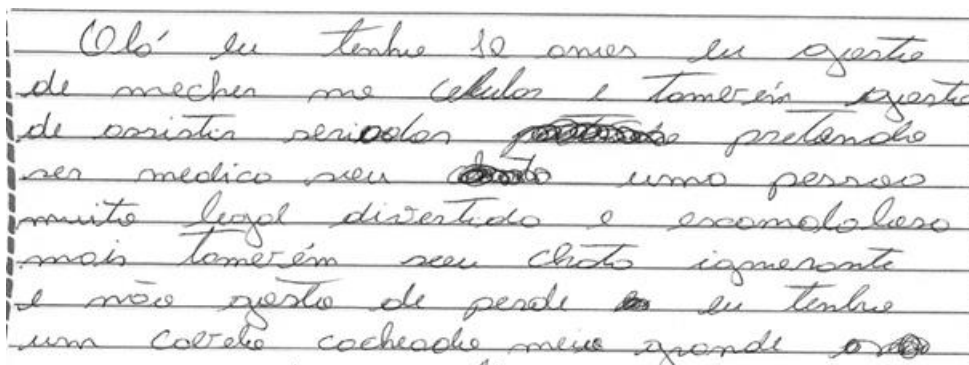 Olá eu tenho 10 anos eu gosto
de mecher no celular e tamerém gosto
de assistir seriados pretando
ser medico sou uma pessoa
muito legal divertida e escomdolosa
mais tamerém sou chato ignorante
e não gosto de perde eu tenho
um cabelo cacheado meio grande